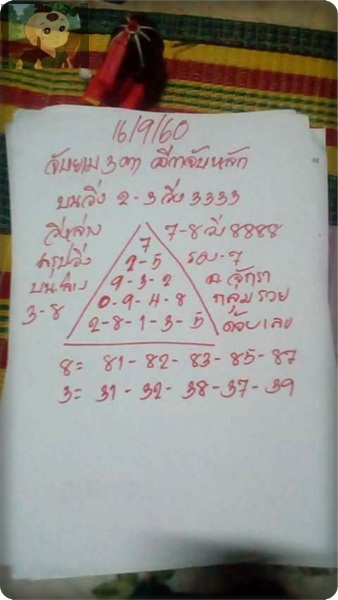 16/9/60
จับยาม 3 ตา
บนวิ่ง 2-3 วิ่ง 3333
วิ่งล่าง 7-8 วิ่ง 8888
7
สรุปวิ่ง 2-5 รอง-7
บนล่าง 9-3-2 อ. จักรา
3-8 0-9-4-8 กลุ่มรวย
2-8-1-3-5 ด้วยเลข
8= 81-82-83-85-87
3= 31-32-38-37-39